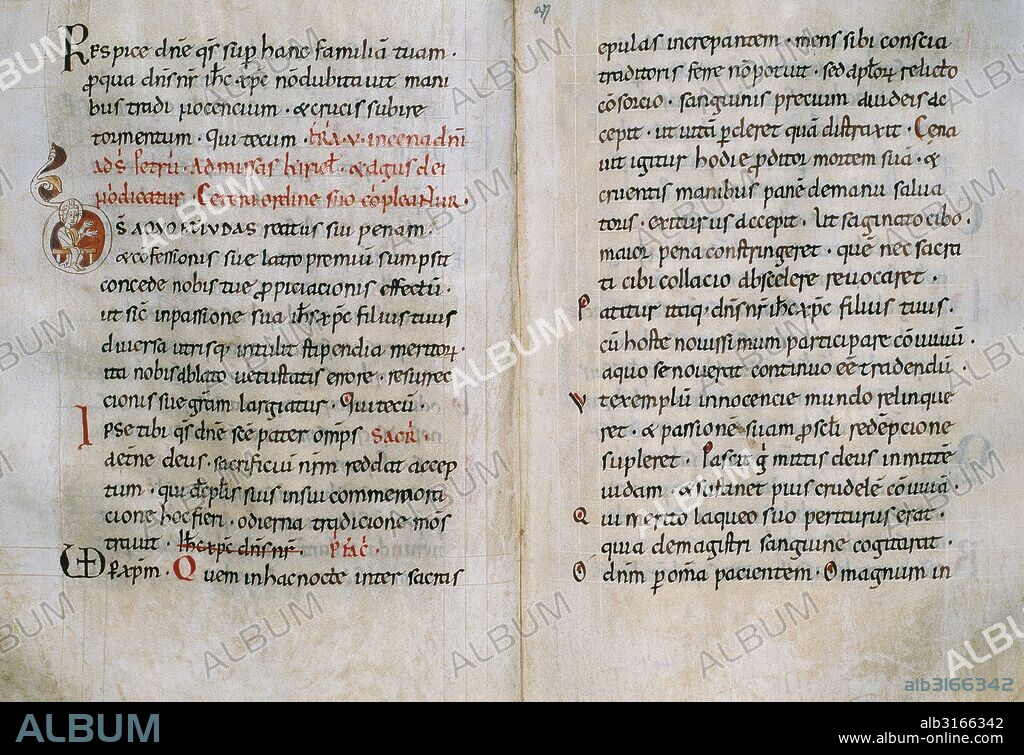 27
Respice dñe q̃s sup hanc familiã tuam·
ꝓqua dñs nr̃ ihc xp̃c nõ dubitauit mani
bus tradi nocencium· & crucis subire
tormentum· Qui tecum· FR̃A·V·incena dñi
ad s̃ petrũ· Ad missas kiriel̃· & agnus dei
Ceteri ordine suo cõpleant̃ur·
D̃S AQVO & IVDAS reatus sui penam·
& cõfessionis sue latro premiũ sumpsit
concede nobis tue ꝓpiciacionis effectũ·
ut sic̃ inpassione sua ihs xp̃c filius tuus
diuersa utrisq; intulit stipendia meritoꝝ·
ita nobis ablato uetustatis errore· resurrec
cionis sue gr̃am largiatur· Qui tecũ
Ipse tibi q̃s dñe sc̃e pater omp̃s SACR̃·
aetñe deus· sacrificiũ nr̃m reddat accep
tum· qui discip̃lis suis insui commemora
cione hoc fieri· odierna tradicione mõs
trauit· Ihc xp̃c dñs nr̃· P̃FAC̃·
VD P̃ xp̃m· Quem inhac nocte inter sacras
epulas increpantem· mens sibi conscia
traditoris ferre nõ potuit· sed apl̃oꝝ relicto
cõsorcio· sanguinis precium a iudeis ac
cepit· ut uitã ꝑderet quã distraxit· Cena
uit igitur hodie ꝓditor mortem suã· &
cruentis manibus panẽ de manu salua
toris· exiturus accepit· Ut saginato cibo·
maior pena constringeret· quẽ nec sacra
ti cibi collacio abscelere reuocaret·
Patitur itaq; dñs nr̃ ihc xp̃c filius tuus·
cũ hoste nouissimum participare cõuiuiũ·
aquo se nouerat continuo eẽ tradendũ·
Vt exemplũ innocencie mundo relinque
ret· & passionẽ suam ꝓ sc̃li redẽpcione
supleret· Pascit g̃ mittis deus inmittẽ
iudam· & sustinet pius crudelẽ cõuiuã·
Qui merito laqueo suo periturus erat·
quia de magistri sanguine cogitarat·
O dñm ꝑ om̃a pacientem· O magnum in
ALBUM
alb3166342
ALBUM
alb3166342
www.album-online.com